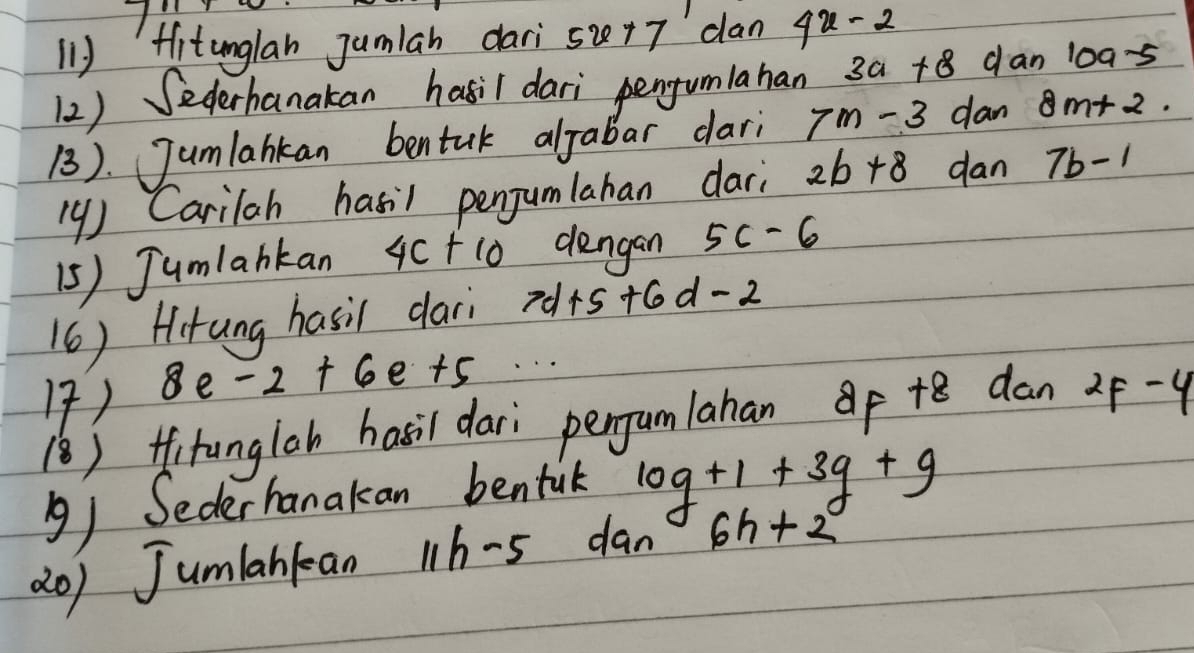 11.) Hitunglah Jumlah dari 5x+7 dan 4x-2
12) Sederhanakan hasil dari penjumlahan 3a +8 dan 10a-5
13). Jumlahkan bentuk aljabar dari 7m-3 dan 8m+2.
14) Carilah hasil penjumlahan dari 2b+8 dan 7b-1
15) Jumlahkan 4c+10 dengan 5c-6
16) Hitung hasil dari 7d+5+6d-2
17) 8e-2+6e+5 ...
18) Hitunglah hasil dari penjumlahan 8f+8 dan 2f-4
19) Sederhanakan bentuk 10g+1+3g+9
20) Jumlahkan 11h-5 dan 6h+2